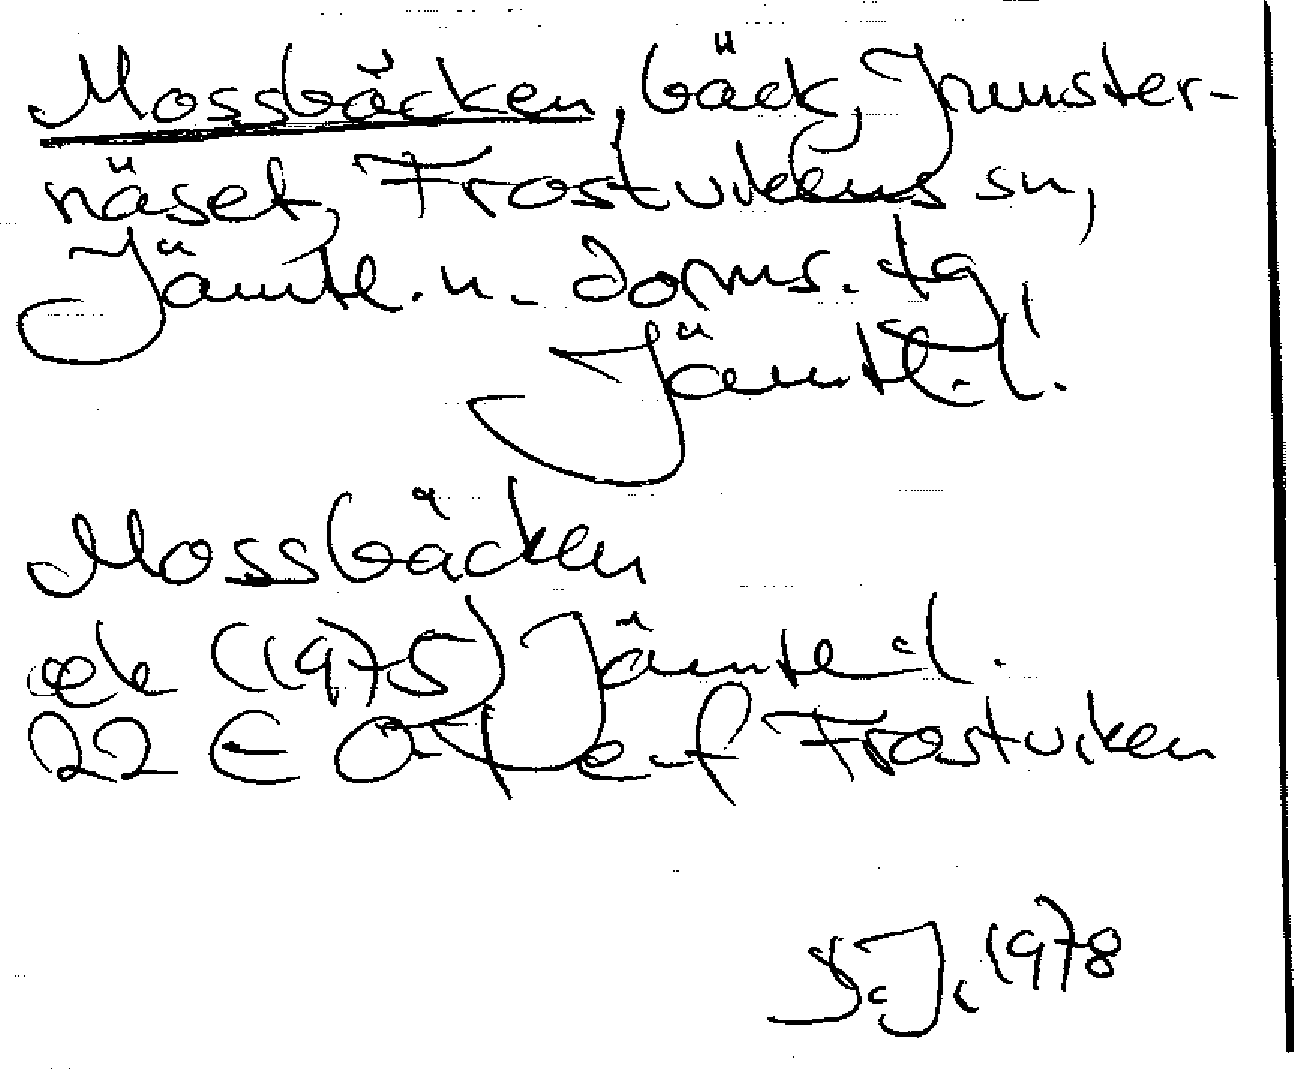 Mossbäcken, bäck, Junster-
näset, Frostvikens sn,
Jämtl. n. doms. tg,
Jämtl. l.
Mossbäcken
ek (1975) Jämtl l.
22 E 0-1 e-f Frostviken
S.J. 1978